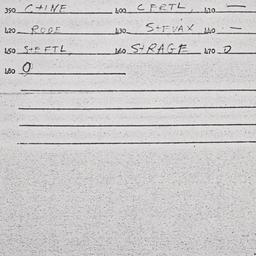 390 C+INE 400 CFRTL, 410 —
420 RODE 430 S+FVAX 440 —
450 S+EFTL, 460 S+RAGE 470 0
480 0